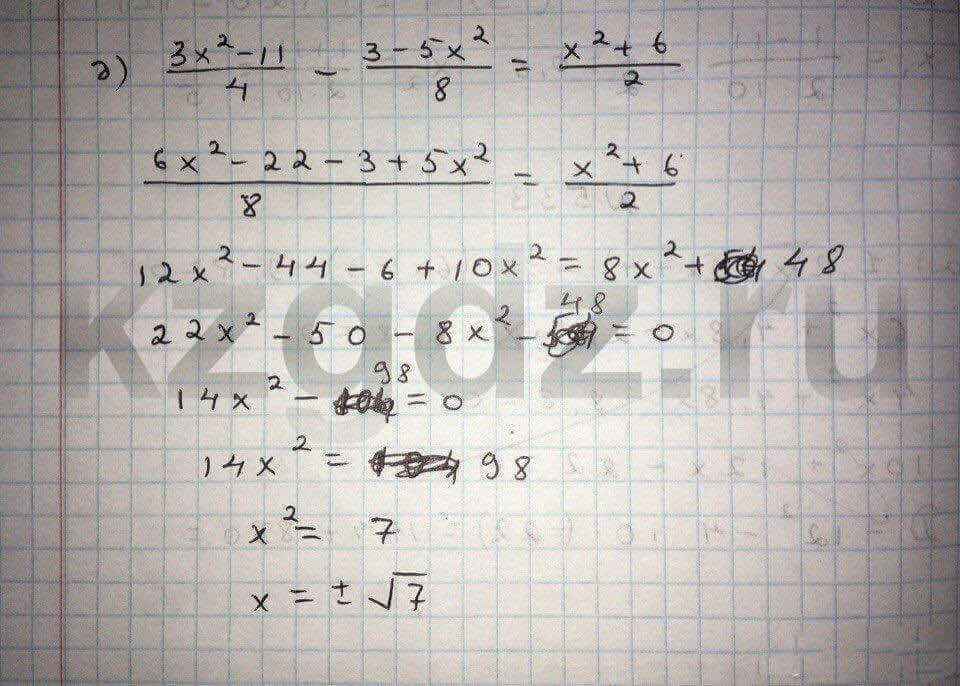 д) (3x² - 11)/4 - (3 - 5x²)/8 = (x² + 6)/2
(6x² - 22 - 3 + 5x²)/8 = (x² + 6)/2
12x² - 44 - 6 + 10x² = 8x² + 48
22x² - 50 - 8x² - 48 = 0
14x² - 98 = 0
14x² = 98
x² = 7
x = ± √7
kzgdz.ru